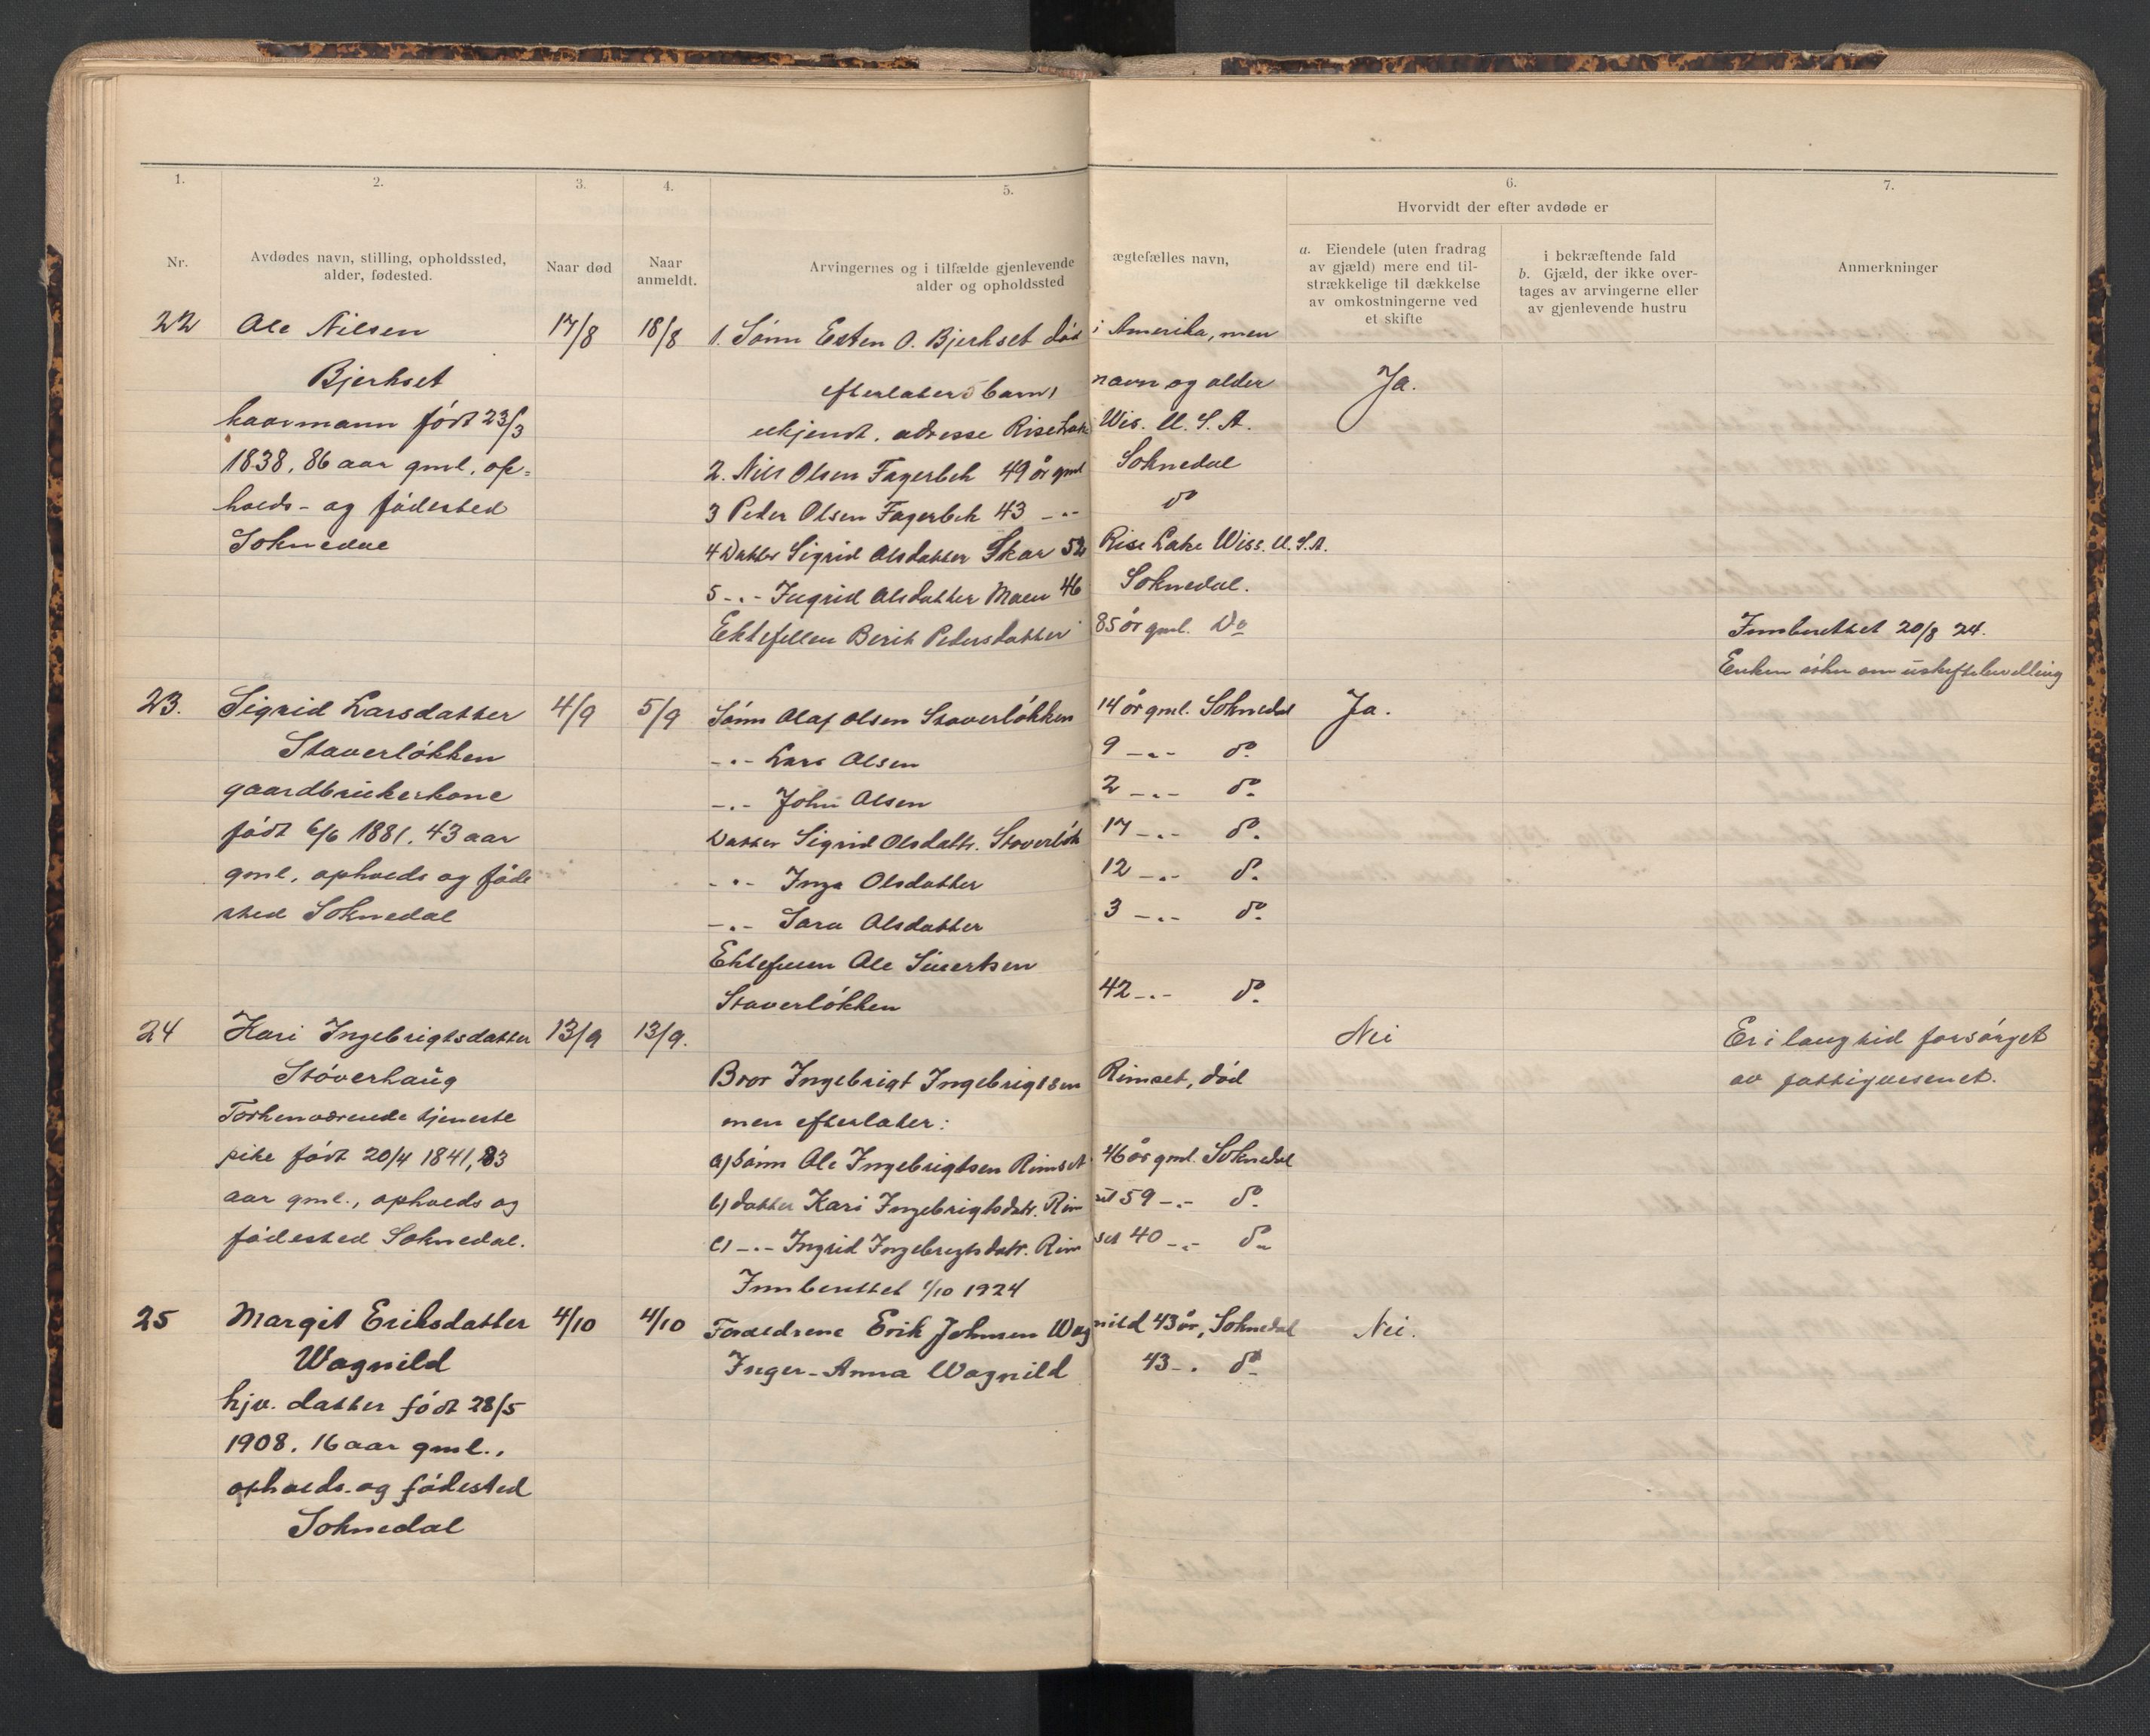 1. 2. 3. 4. 5. 6. 7.
Hvorvidt der efter avdøde er
Nr.
Avdødes navn, stilling, opholdssted,
alder, fødested.
Naar død
Naar
anmeldt.
Arvingernes og i tilfælde gjenlevende ægtefælles navn,
alder og opholdssted
a. Eiendele (uten fradrag
av gjæld) mere end til-
strækkelige til dækkelse
av omkostningerne ved
et skifte
i bekræftende fald
b. Gjæld, der ikke over-
tages av arvingerne eller
av gjenlevende hustru
Anmerkninger
22 Ole Nilsen 17/8 18/8 1. Sønn Esten O. Bjerkset død i Amerika, men
Bjerkset efterlater 5 barn, navn og alder Ja.
kaarmann født 23/3 ukjendt. adresse Rise Lake Wis. U. S. A.
1838, 86 aar gml, op= 2. Nils Olsen Fagerbek 49 år gml Soknedal
holds- og fødested 3 Peder Olsen Fagerbek 43 -"- do
Soknedal 4 Datter Sigrid Olsdatter Skar 52 Rise Lake Wiss. U. S. A.
5 -"- Ingrid Olsdatter Moen 46 Soknedal.
Ektefellen Berit Pedersdatter 85 år gml. Do Innberettet 20/8 24.
Enken søker om uskiftebevilling
23. Sigrid Larsdatter 4/9 5/9 Sønn Olaf Olsen Staverløkken 14 år gml. Soknedal Ja.
Staverløkken -"- Lars Olsen 9 -"- do
gaardbrukerkone -"- John Olsen 2 -"- do
født 6/6 1881. 43 aar Datter Sigrid Olsdattr. Staverløk 17 -"- do
gml, opholds og føde -"- Inga Olsdatter 12 -"- do
sted Soknedal -"- Sara Olsdatter 3 -"- do
Ektefellen Ole Sivertsen
Staverløkken 42 -"- do
24 Kari Ingebrigtsdatter 13/9 13/9. Nei Er i lang tid forsørget
Støverhaug Bror Ingebrigt Ingebrigtsen Rimset, død av fattigvesenet.
Forhenværende tjeneste men efterlater:
pike født 20/4 1841, 83 a) Sønn Ole Ingebrigtsen Rimset 46 år gml. Soknedal
aar gml., opholds og b) datter Kari Ingebrigtsdatr. Rimset 59 -"- do
fødested Soknedal. c) -"- Ingrid Ingebrigtsdatr. Rimset 40 -"- do
Innberettet 1/10 1924
25 Margit Eriksdatter 4/10 4/10 Foreldrene Erik Johnsen Wagnild 43 år, Soknedal Nei.
Wagnild Inger-Anna Wagnild 43 -"- do
hjv. datter født 28/5
1908. 16 aar gml.,
opholds- og fødested
Soknedal